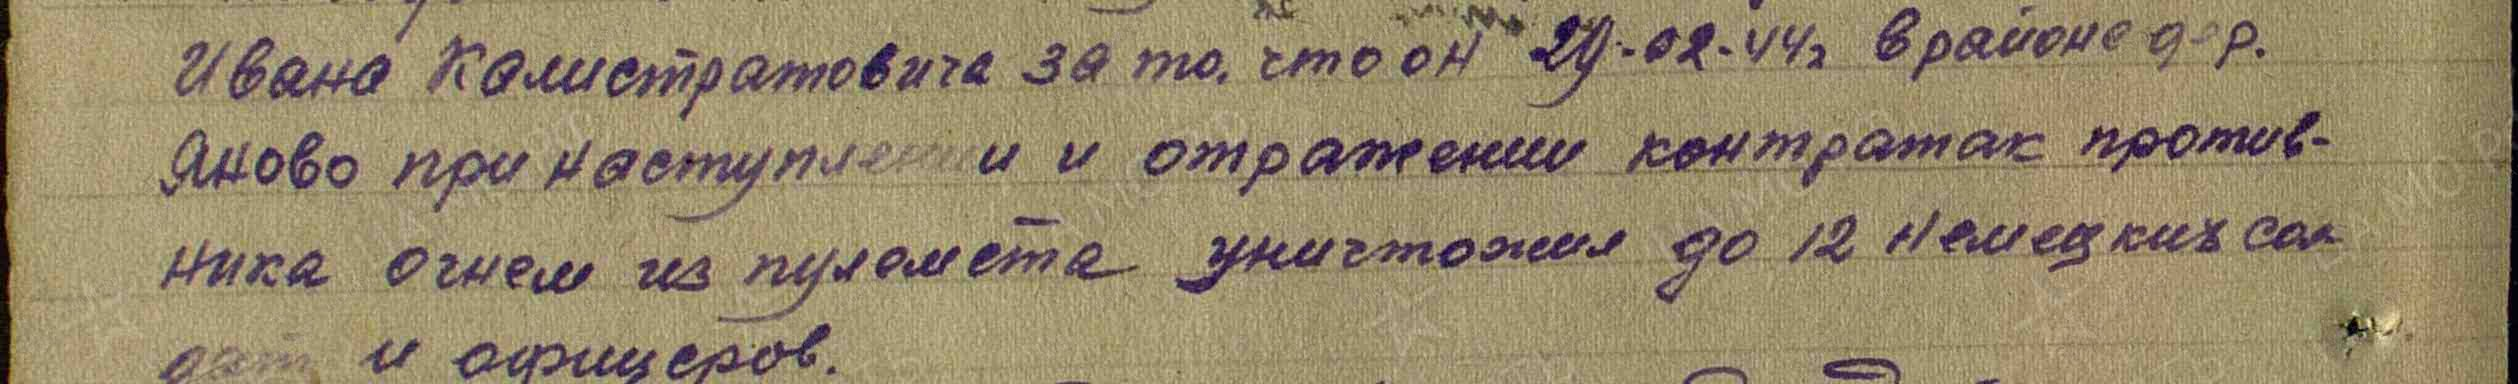 Ивана Калистратовича за то, что он 29-02-44г в районе дер.
Яново при наступлении и отражении контратак против-
ника огнем из пулемета уничтожил до 12 немецких сол
дат и офицеров.